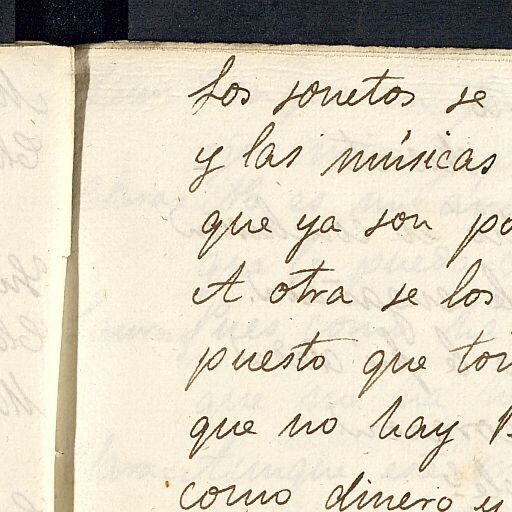 Los sonetos se
y las músicas
que ya son
A otra se los
puesto que
que no hay
como dinero y